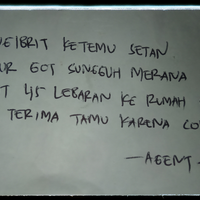 KETEMU SETAN
GOT SUNGGUH MERANA
LEBARAN KE RUMAH
TERIMA TAMU KARENA CO
—AGENT